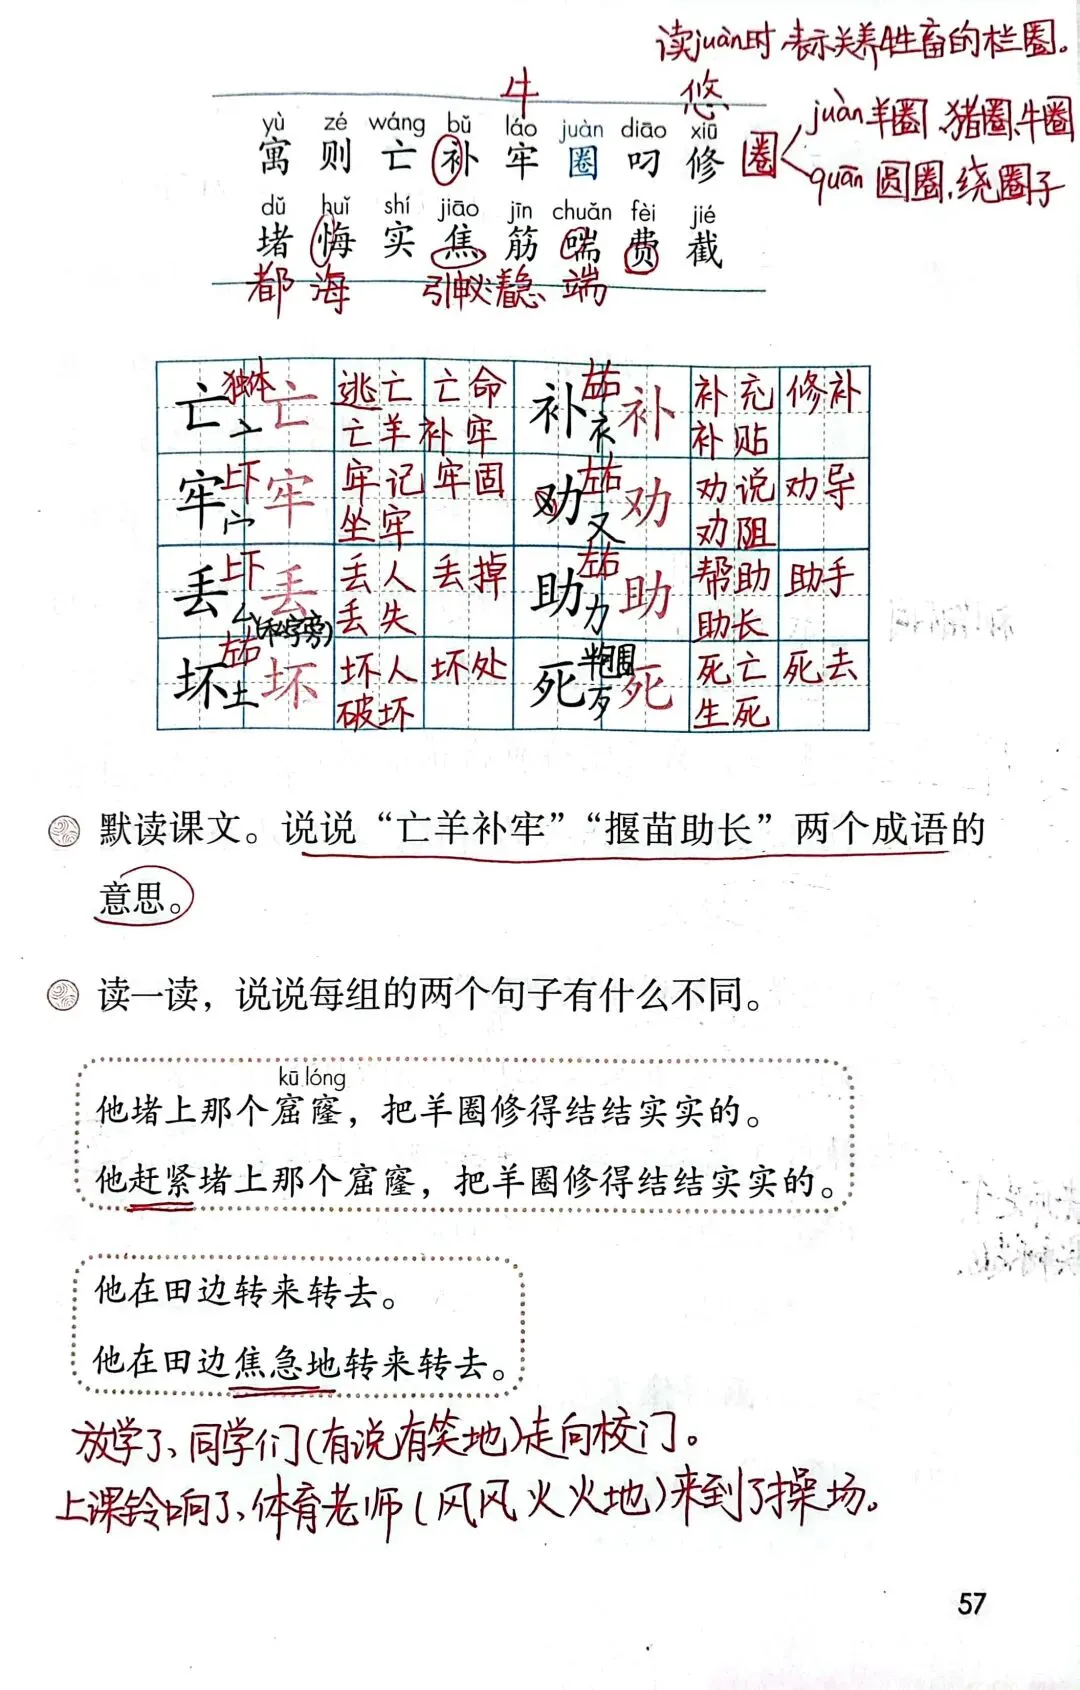 读juàn时,表示关养牲畜的栏圈。
牛 悠
juàn羊圈、猪圈、牛圈
圈
quān圆圈、绕圈子
yù zé wáng bǔ láo juàn diāo xiū
寓 则 亡 补 牢 圈 叼 修
dǔ huǐ shí jiāo jīn chuǎn fèi jié
堵 悔 实 焦 筋 喘 费 截
都 海 端
亡 独体 亠 亡 逃亡 亡命 亡羊补牢
补 左右 衤 补 补充 修补 补贴
牢 上下 宀 牢 牢记 牢固 坐牢
劝 左右 又 劝 劝说 劝导 劝阻
丢 上下 厶(私字旁) 丢 丢人 丢掉 丢失
助 左右 力 助 帮助 助手 助长
坏 左右 土 坏 坏人 坏处 破坏
死 半包围 歹 死 死亡 死去 生死
默读课文。说说“亡羊补牢”“揠苗助长”两个成语的
意思。
读一读，说说每组的两个句子有什么不同。
kū lóng
他堵上那个窟窿，把羊圈修得结结实实的。
他赶紧堵上那个窟窿，把羊圈修得结结实实的。
他在田边转来转去。
他在田边焦急地转来转去。
放学了、同学们(有说有笑地)走向校门。
上课铃响了、体育老师(风风火火地)来到了操场。
57